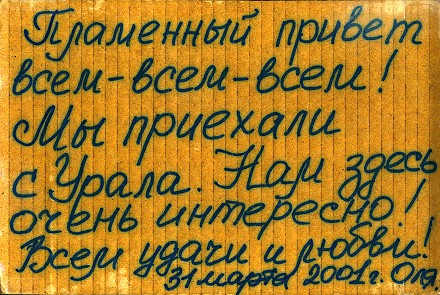 Пламенный привет
всем-всем-всем!
Мы приехали
с Урала. Нам здесь
очень интересно!
Всем удачи и любви!
31 марта 2001г. Оля.